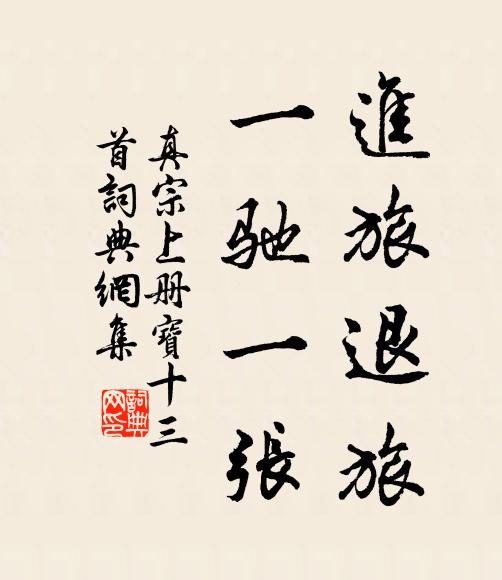 進旅退旅
一馳一張
真宗上册寶十三
首詞典網集
詞典网印